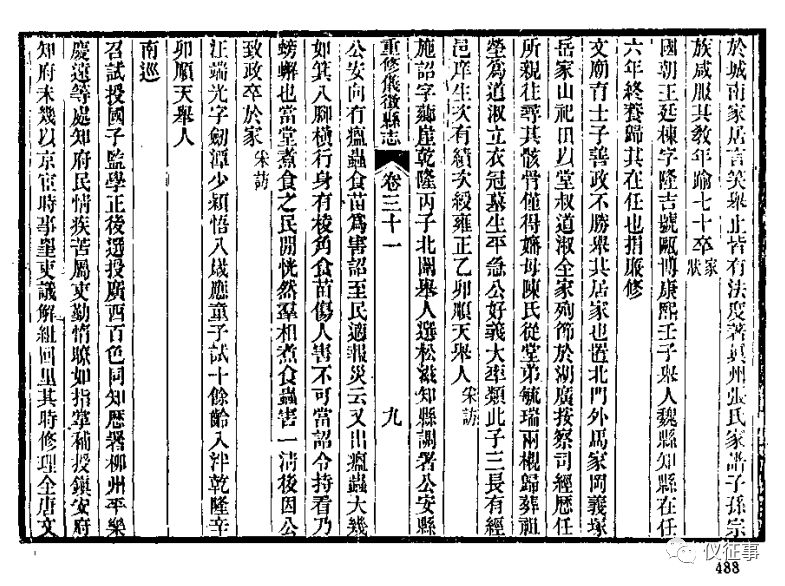 於城南家居言笑舉止皆有法度著眞州張氏家譜子孫宗
族咸服其教年踰七十卒家狀
國朝王廷棟字隆吉號甌博康熙壬子舉人魏縣知縣在任
六年終養歸其在任也指廉修
文廟育士子善政不勝舉其居家也置北門外馬家岡義塚
岳家山祀田以堂叔道淑全家殉節於湖廣按察司經歷任
所親往尋其骸骨僅得嬸母陳氏從堂弟毓瑞兩櫬歸葬祖
塋爲道淑立衣冠墓生平急公好義大率類此子三長有經
邑庠生次有績次綬雍正乙卯順天舉人宋訪
施詔字蘓崖乾隆丙子北闈舉人選松滋知縣調署公安縣
重修儀徵縣志 卷三十一 九
公安向有瘟蟲食苗爲害詔至民適報災云又出瘟蟲大幾
如箕八腳橫行身有棱角食苗傷人害不可當詔令持看乃
螃蠏也當堂煮食之民閒恍然羣相煮食蟲害一淸後因公
致政卒於家宋訪
江端光字劒潭少穎悟八歲應童子試十餘齡入泮乾隆辛
卯順天舉人
南巡
召試授國子監學正後選授廣西百色同知歷署柳州平樂
慶遠等處知府民情疾苦屬吏勤惰瞭如指掌補授鎭安府
知府未幾以京官時事罣吏議解組回里其時修理全唐文
488
仪征事